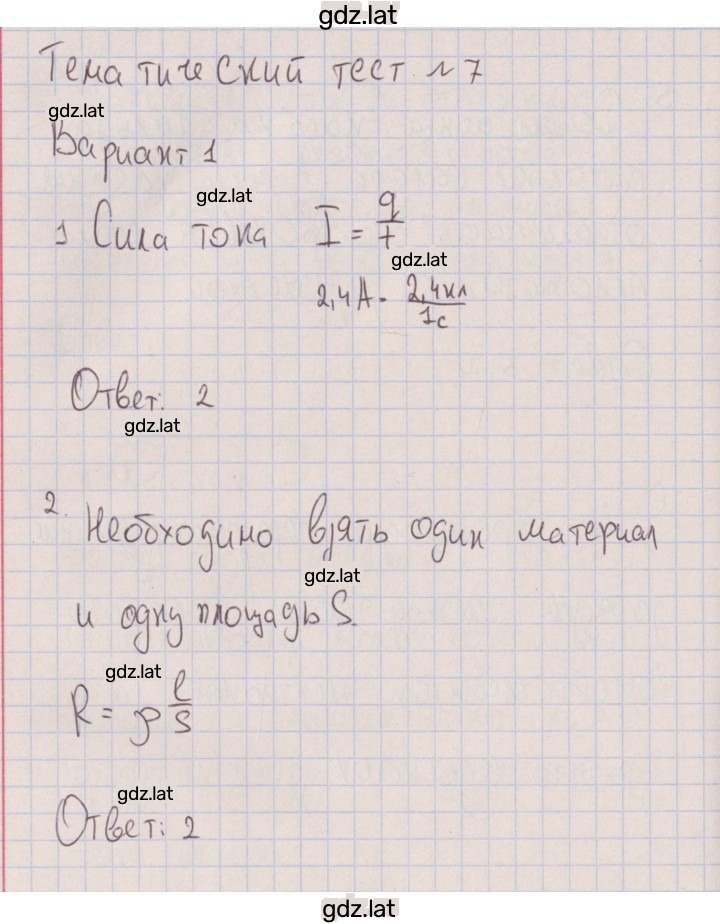 gdz.lat
Тематический тест №7
gdz.lat
Вариант 1
gdz.lat
1 Сила тока I = q/t
gdz.lat
2,4А = 2,4кл/1с
Ответ: 2
gdz.lat
2. Необходимо взять один материал
gdz.lat
и одну площадь S.
gdz.lat
R = ρ l/S
gdz.lat
Ответ: 2
gdz.lat